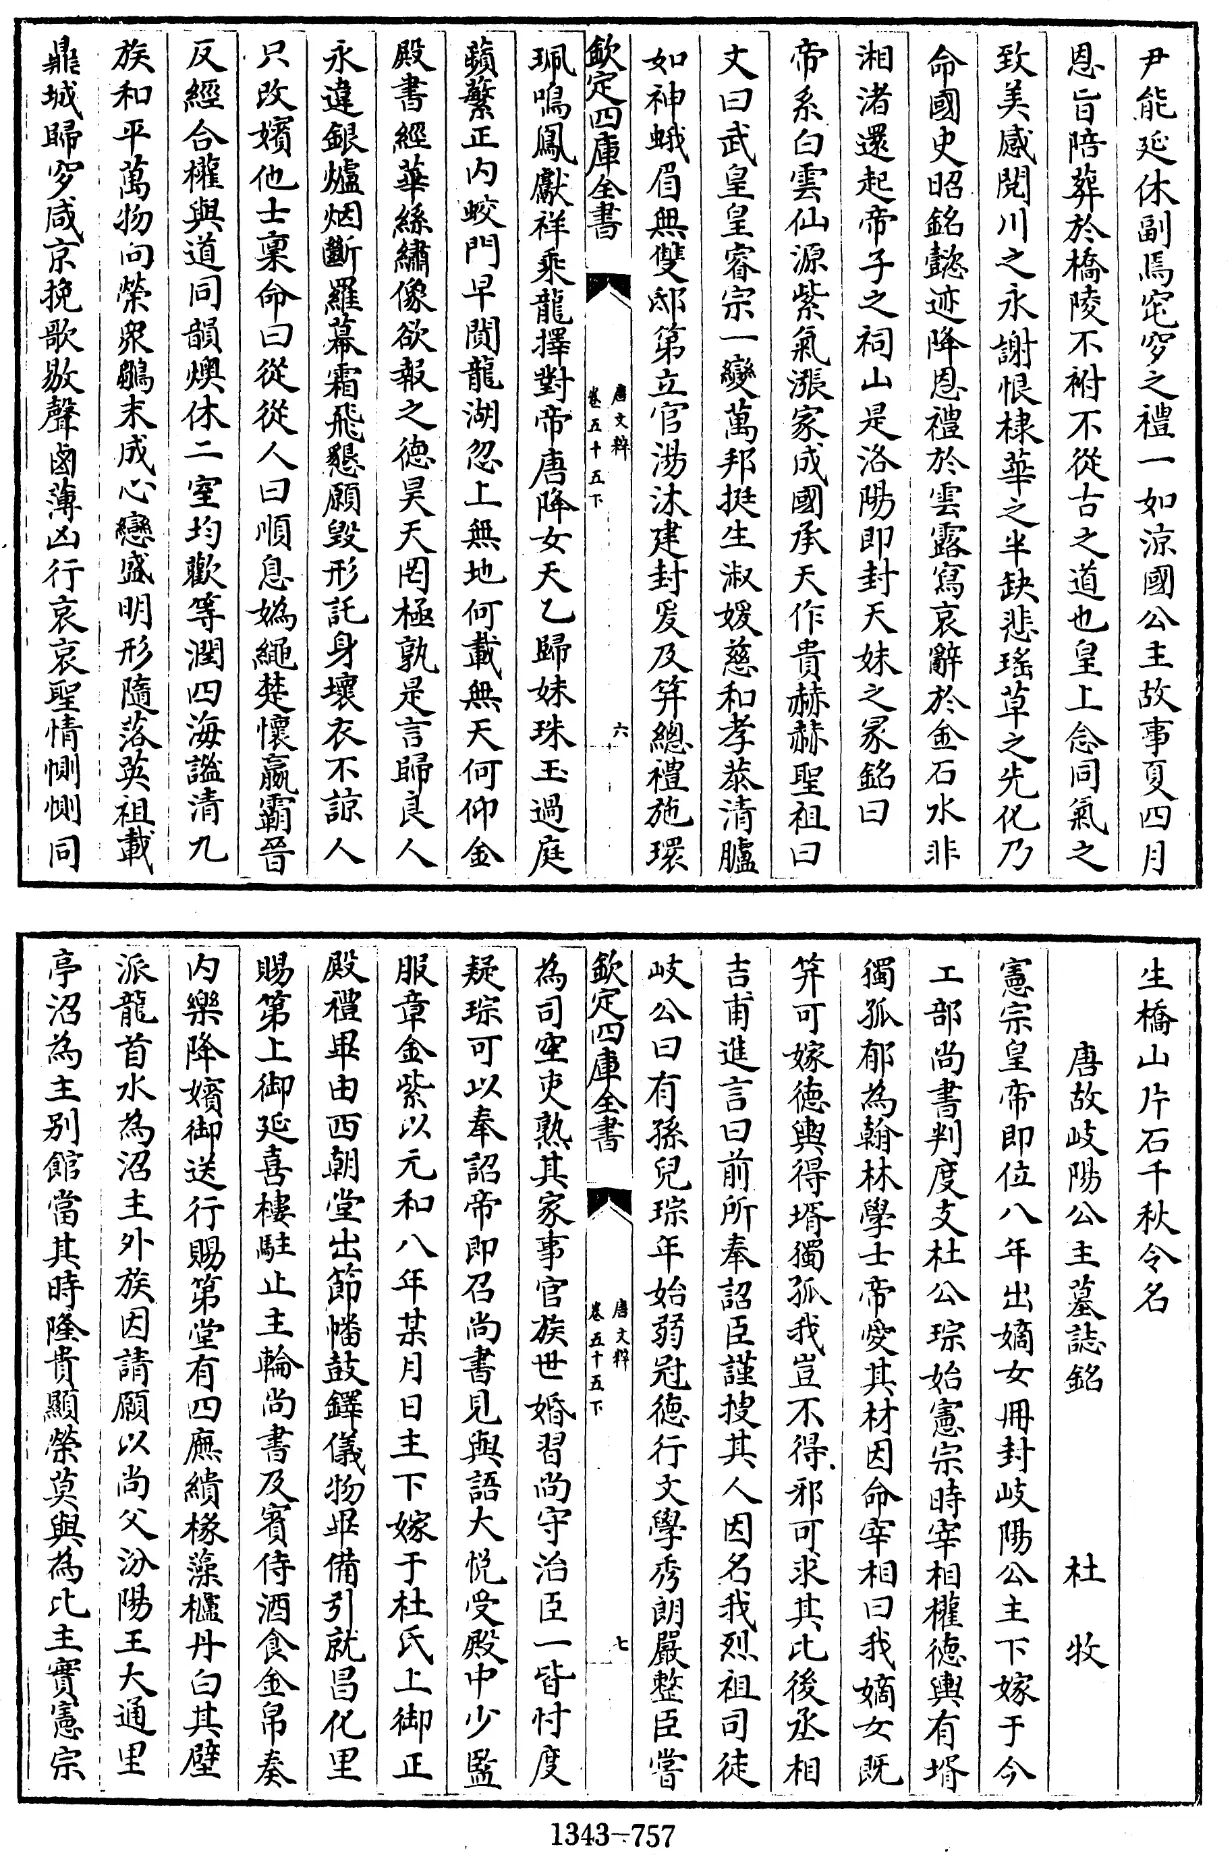 尹能延休副焉窀穸之禮一如涼國公主故事夏四月
恩旨陪葬於橋陵不祔不從古之道也皇上念同氣之
致美感閱川之永謝恨棣華之半缺悲瑤草之先化乃
命國史昭銘懿迹降恩禮於雲露寫哀辭於金石水非
湘渚還起帝子之祠山是洛陽即封天妹之冢銘曰
帝系白雲仙源紫氣漲家成國承天作貴赫赫聖祖曰
文曰武皇皇睿宗一變萬邦挺生淑媛慈和孝恭清臚
如神蛾眉無雙邸第立官湯沐建封爰及笄總禮施環
欽定四庫全書
唐文粹
卷五十五下
六
珮鳴鳳獻祥乘龍擇對帝唐降女天乙歸妹珠玉過庭
蘋蘩正内蛟門早閴龍湖忽上無地何載無天何仰金
殿書經華絲繡像欲報之德昊天罔極孰是言歸良人
永違銀爐烟斷羅幕霜飛懇願毀形託身壞衣不諒人
只改嬪他士稟命曰從從人曰順息媯繩楚懷嬴霸晉
反經合權與道同韻燠休二室均歡等潤四海謐清九
族和平萬物向榮衆鶵未成心戀盛明形隨落英祖載
鼎城歸穸咸京挽歌敭聲鹵薄凶行哀哀聖情惻惻同
生橋山片石千秋令名
唐故岐陽公主墓誌銘 杜牧
憲宗皇帝即位八年出嫡女冊封岐陽公主下嫁于今
工部尚書判度支杜公琮始憲宗時宰相權德輿有壻
獨孤郁為翰林學士帝愛其材因命宰相曰我嫡女既
笄可嫁德輿得壻獨孤我豈不得邪可求其比後丞相
吉甫進言曰前所奉詔臣謹搜其人因名我烈祖司徒
岐公曰有孫兒琮年始弱冠德行文學秀朗嚴整臣嘗
欽定四庫全書
唐文粹
卷五十五下
七
為司空吏熟其家事官族世婚習尚守治臣一皆忖度
疑琮可以奉詔帝即召尚書見與語大悦受殿中少監
服章金紫以元和八年某月日主下嫁于杜氏上御正
殿禮畢由西朝堂出節幡鼓鐸儀物畢備引就昌化里
賜第上御延喜樓駐止主輪尚書及賓侍酒食金帛奏
内樂降嬪御送行賜第堂有四廡繢椽藻櫨丹白其壁
派龍首水為沼主外族因請願以尚父汾陽王大通里
亭沼為主別館當其時隆貴顯榮莫與為比主實憲宗
1343-757